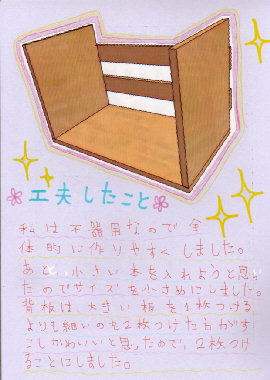 工夫したこと
私は不器用なので全
体的に作りやすくしました。
あと、小さい本を入れようと思っ
たのでサイズを小さめにしました。
背板は大きい板を1枚つける
よりも細いのを2枚つけた方がす
こしかわいいと思ったので、2枚つけ
ることにしました。